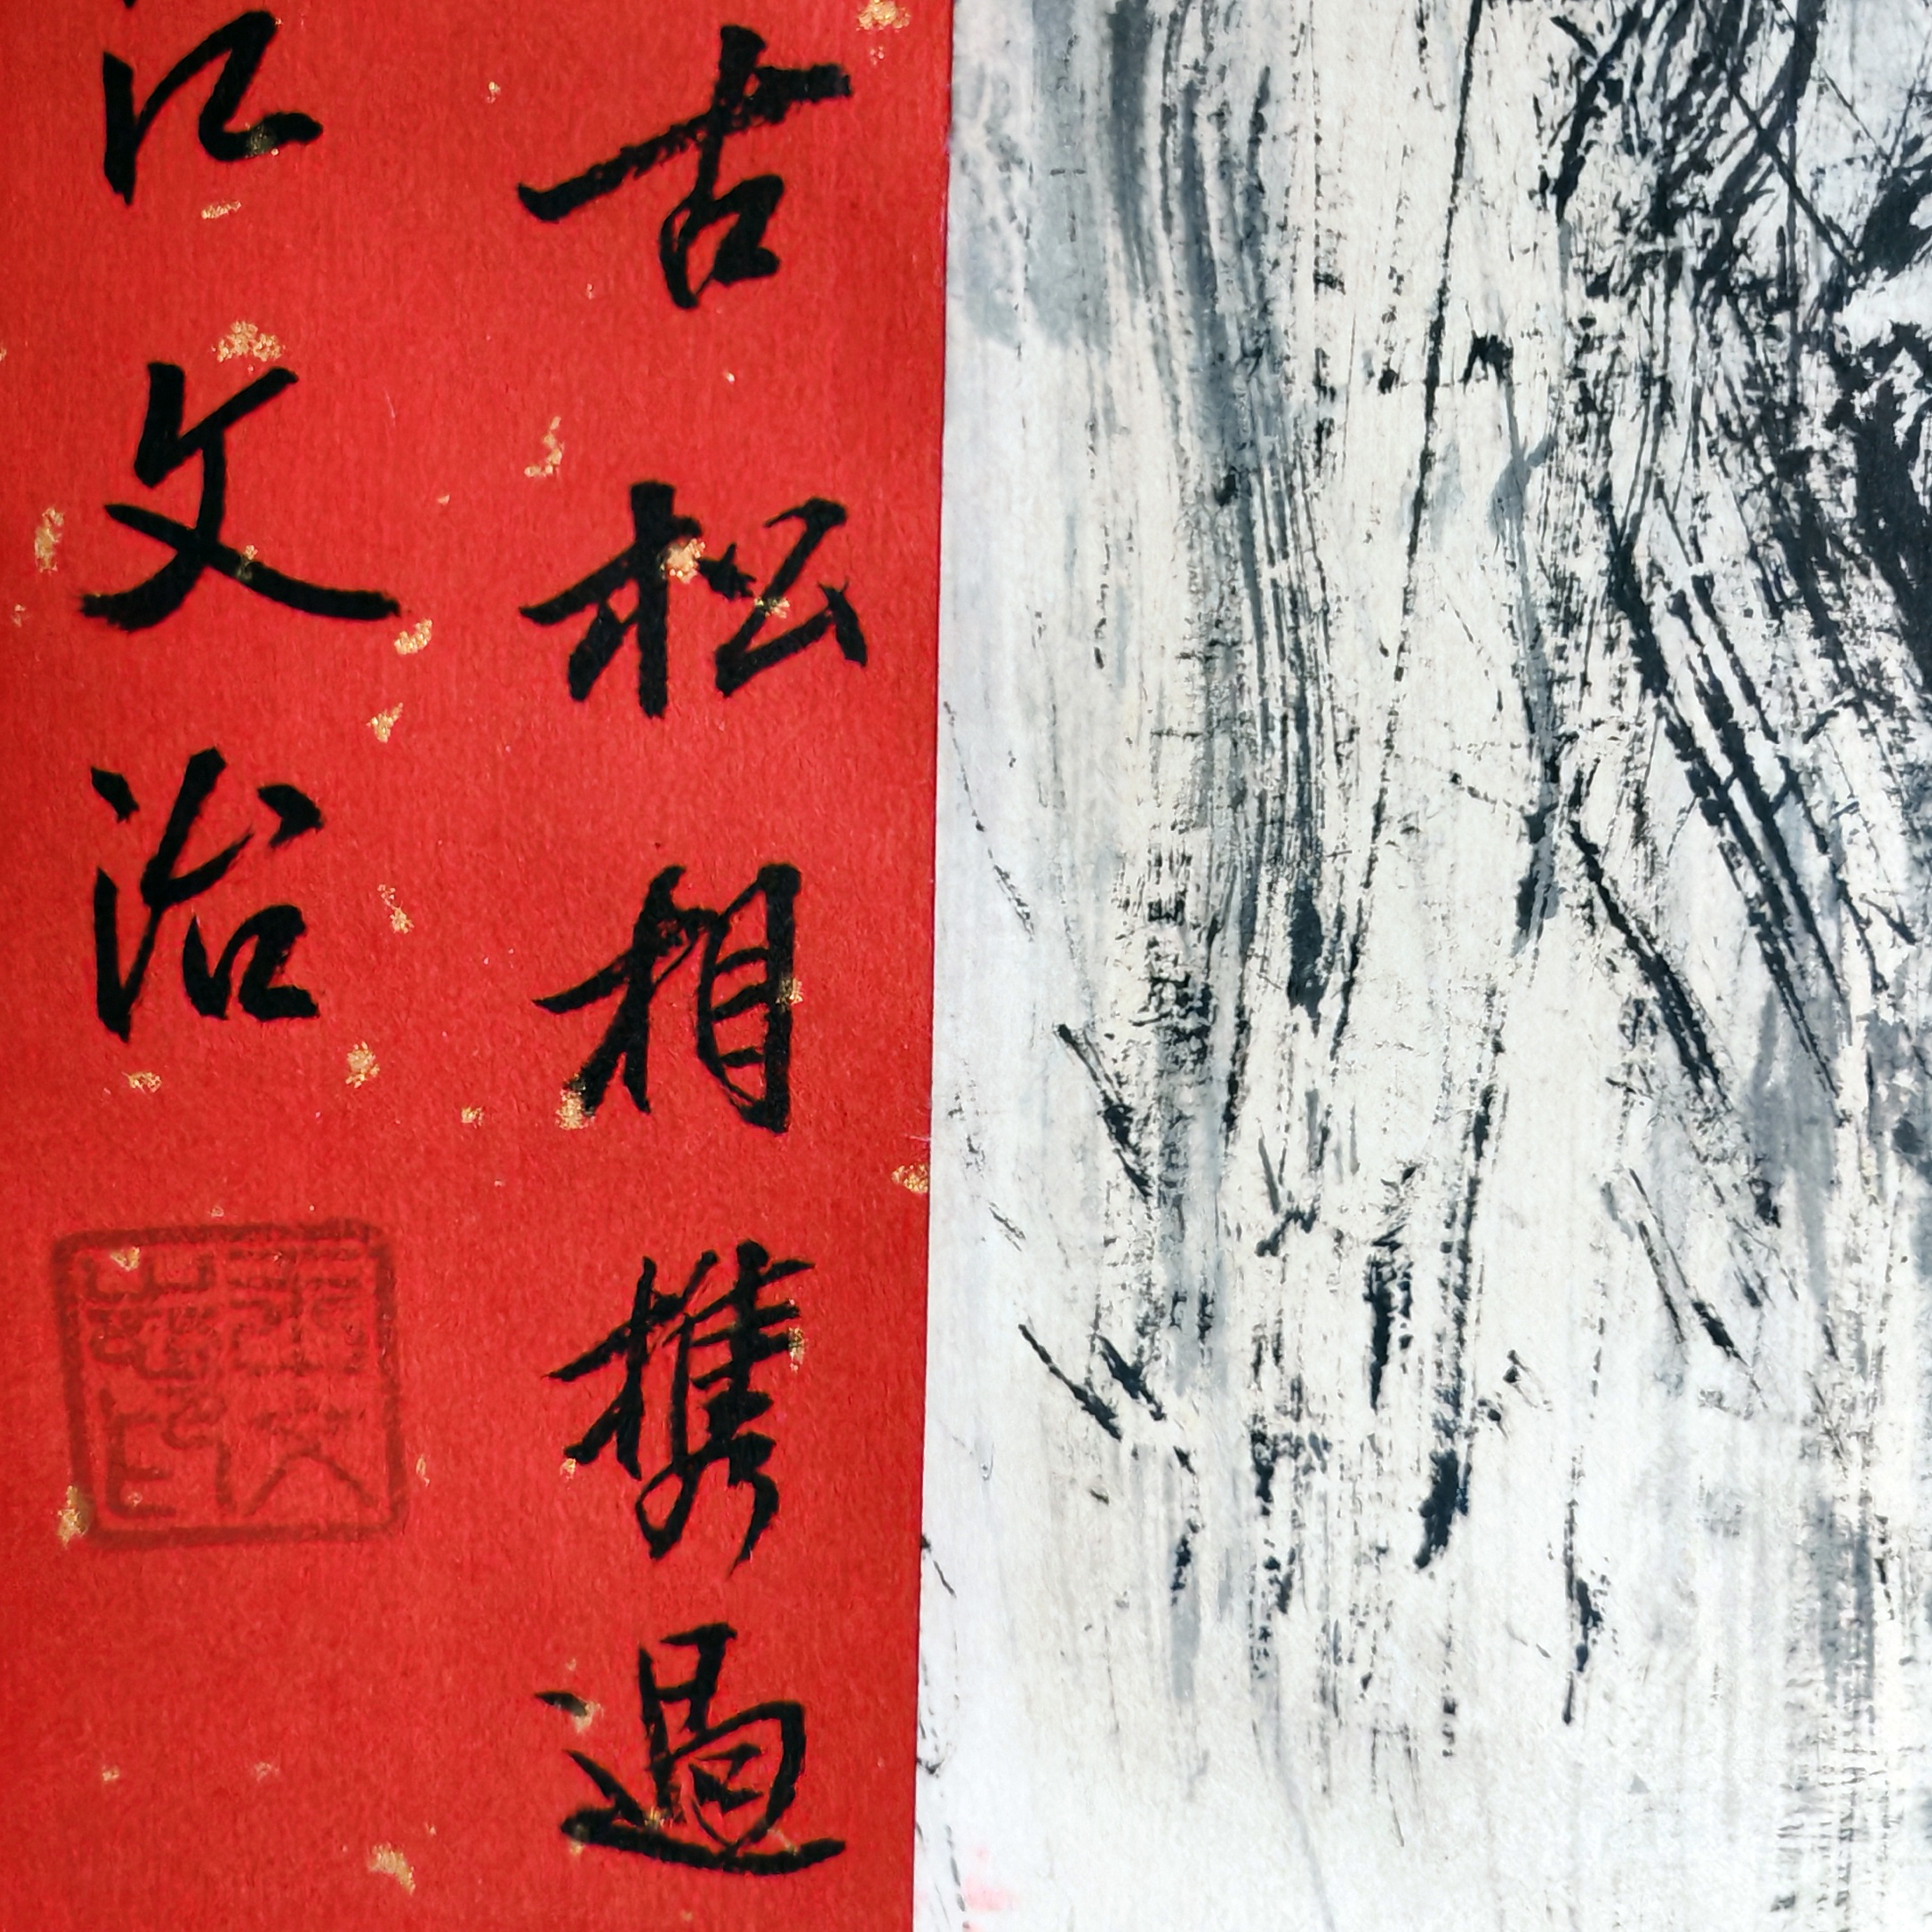 古松相携過
文治